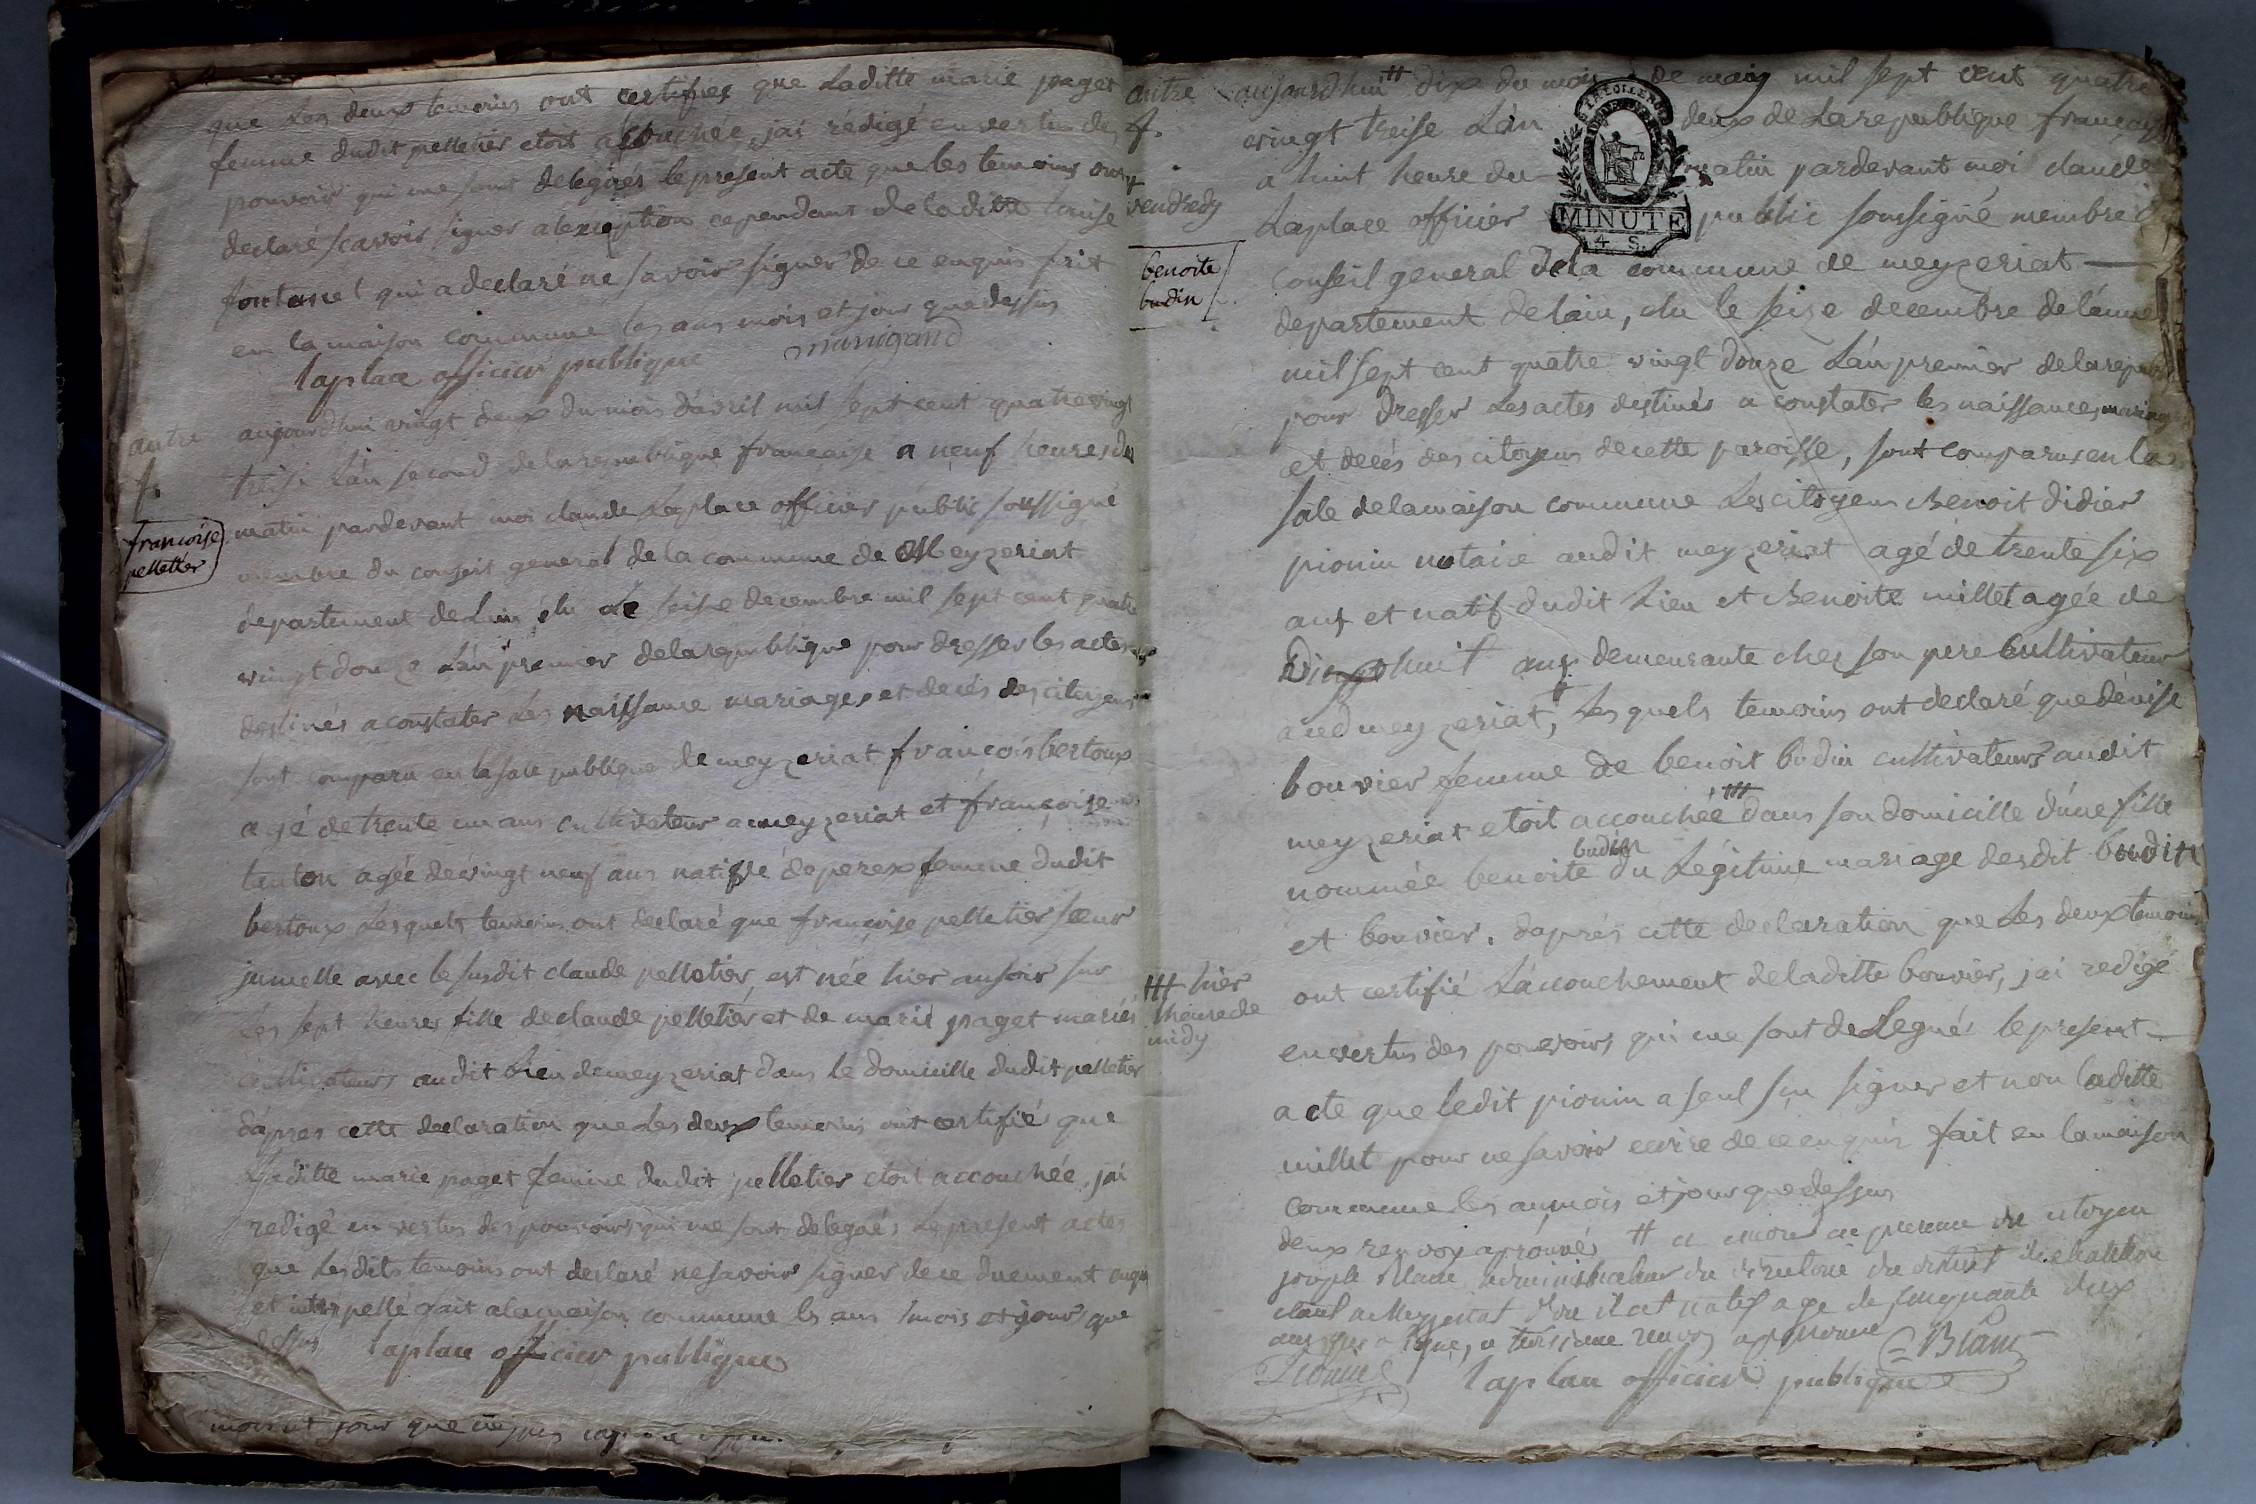 que Les deux temoins ont certifiez que Laditte marie paget
femme dudit pelletier etoit accouchée, jai rédigé en vertus des
pouvoirs qui me sont delegués le present acte que les temoins ont
declaré scavoir signer a lexception cependant de laditte louise
fontanel qui a declaré ne savoir signer de ce enquis fait
en la maison commune les ans mois et jour que dessus
laplace officier publique manigand
autre
f.
francoise
pelletier
aujourdhui vingt deux du mois d'avril mil sept cent quatrevingt
treise L'án second de la republique française a neuf heures du
matin pardevant moi claude Laplace officier public soussigné
membre du conseil general de la commune de Meyzeriat
département de Lain, élu Le seise decembre mil sept cent quatre
vingt douze L'án premier de la republique pour dresser les actes
destinés a constater Les naissance mariages et decés des citoyens
sont comparu en la sale publique de meyzeriat françois bertoux
agé de trente un ans cultivateur a meyzeriat et françoise
tenton agée de vingt neuf ans natifve de perex femme dudit
bertoux Lesquels temoins ont declaré que françoise pelletier sœur
jumelle avec le susdit claude pelletier, est née hier au soir sur
Les sept heures fille de claude pelletier et de marie paget mariés
cultivateurs audit Lieu de meyzeriat dans le domicille dudit pelletier
d'apres cette declaration que Les deux temoins ont certifié que
Laditte marie paget femme dudit pelletier etoit accouchée, jai
redigé en vertus des pouvoirs qui me sont delegués Le present actes
que Lesdits temoins ont declaré ne savoir signer de ce duement enquis
et interpellé fait a la maison commune les ans mois et jour que
dessus laplace officier publique
mois et jour que
autre
f.
vendredy
benoite
budin
aujourdhui # dix du mois de may mil sept cent quatre
vingt treise L'án deux de La republique française
a huit heure du matin pardevant moi claude
Laplace officier public soussigné membre du
MINUTE
4 S.
conseil general de la commune de meyzeriat
departement de lain, élu le seize decembre de l'anné
mil sept cent quatre vingt douze L'án premier de la repub
pour dresser Les actes destinés a constater les naissances, mariage
et decés des citoyens de cette paroisse, sont comparus en la
sale de la maison commune Les citoyens Benoit didier
pionin notaire audit meyzeriat agé de trente six
ans et natif dudit Lieu et Benoite millet agée de
Dix huit ans demeurante chez son pere cultivateur
aud meyzeriat, # Lesquels temoins ont declaré que dénise
bouvier femme de benoit budin cultivateurs audit
meyzeriat etoit accouchée ## dans son domicille d'une fille
nommée benoite budin du Légitime mariage desdit budin
et bouvier. d'aprés cette declaration que Les deux temoins
ont certifié L'accouchement de laditte bouvier, jai redigé
## hier
lheure de
midy
en vertus des pouvoirs qui me sont delegués le present
acte que ledit pionin a seul su signer et non laditte
millet pour ne savoir ecrire de ce enquis fait en la maison
commune les an, mois et jour que dessus
deux renvoy aprouvés # et encore en presence du citoyen
joseph Blanc administrateur du directoire du district de chatillon
natif agé de cinquante deux
ans troisieme renvoy approuvé Blanc
Pionin laplace officier publique